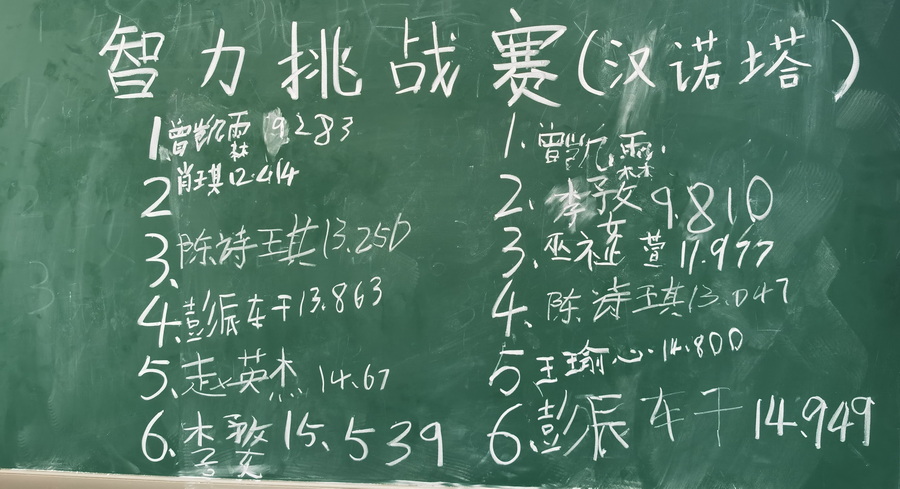 智力挑战赛(汉诺塔)
1曾凯霖 9.283
2肖琪12.414
3.陈诗琪13.250
4.彭辰轩13.863
5.赵英杰 14.67
6.李 15.539
1.曾凯霖.
2.李 9.810
3.巫 萱 11.977
4.陈诗琪13.047
5王瑜心.14.800
6.彭辰轩14.949